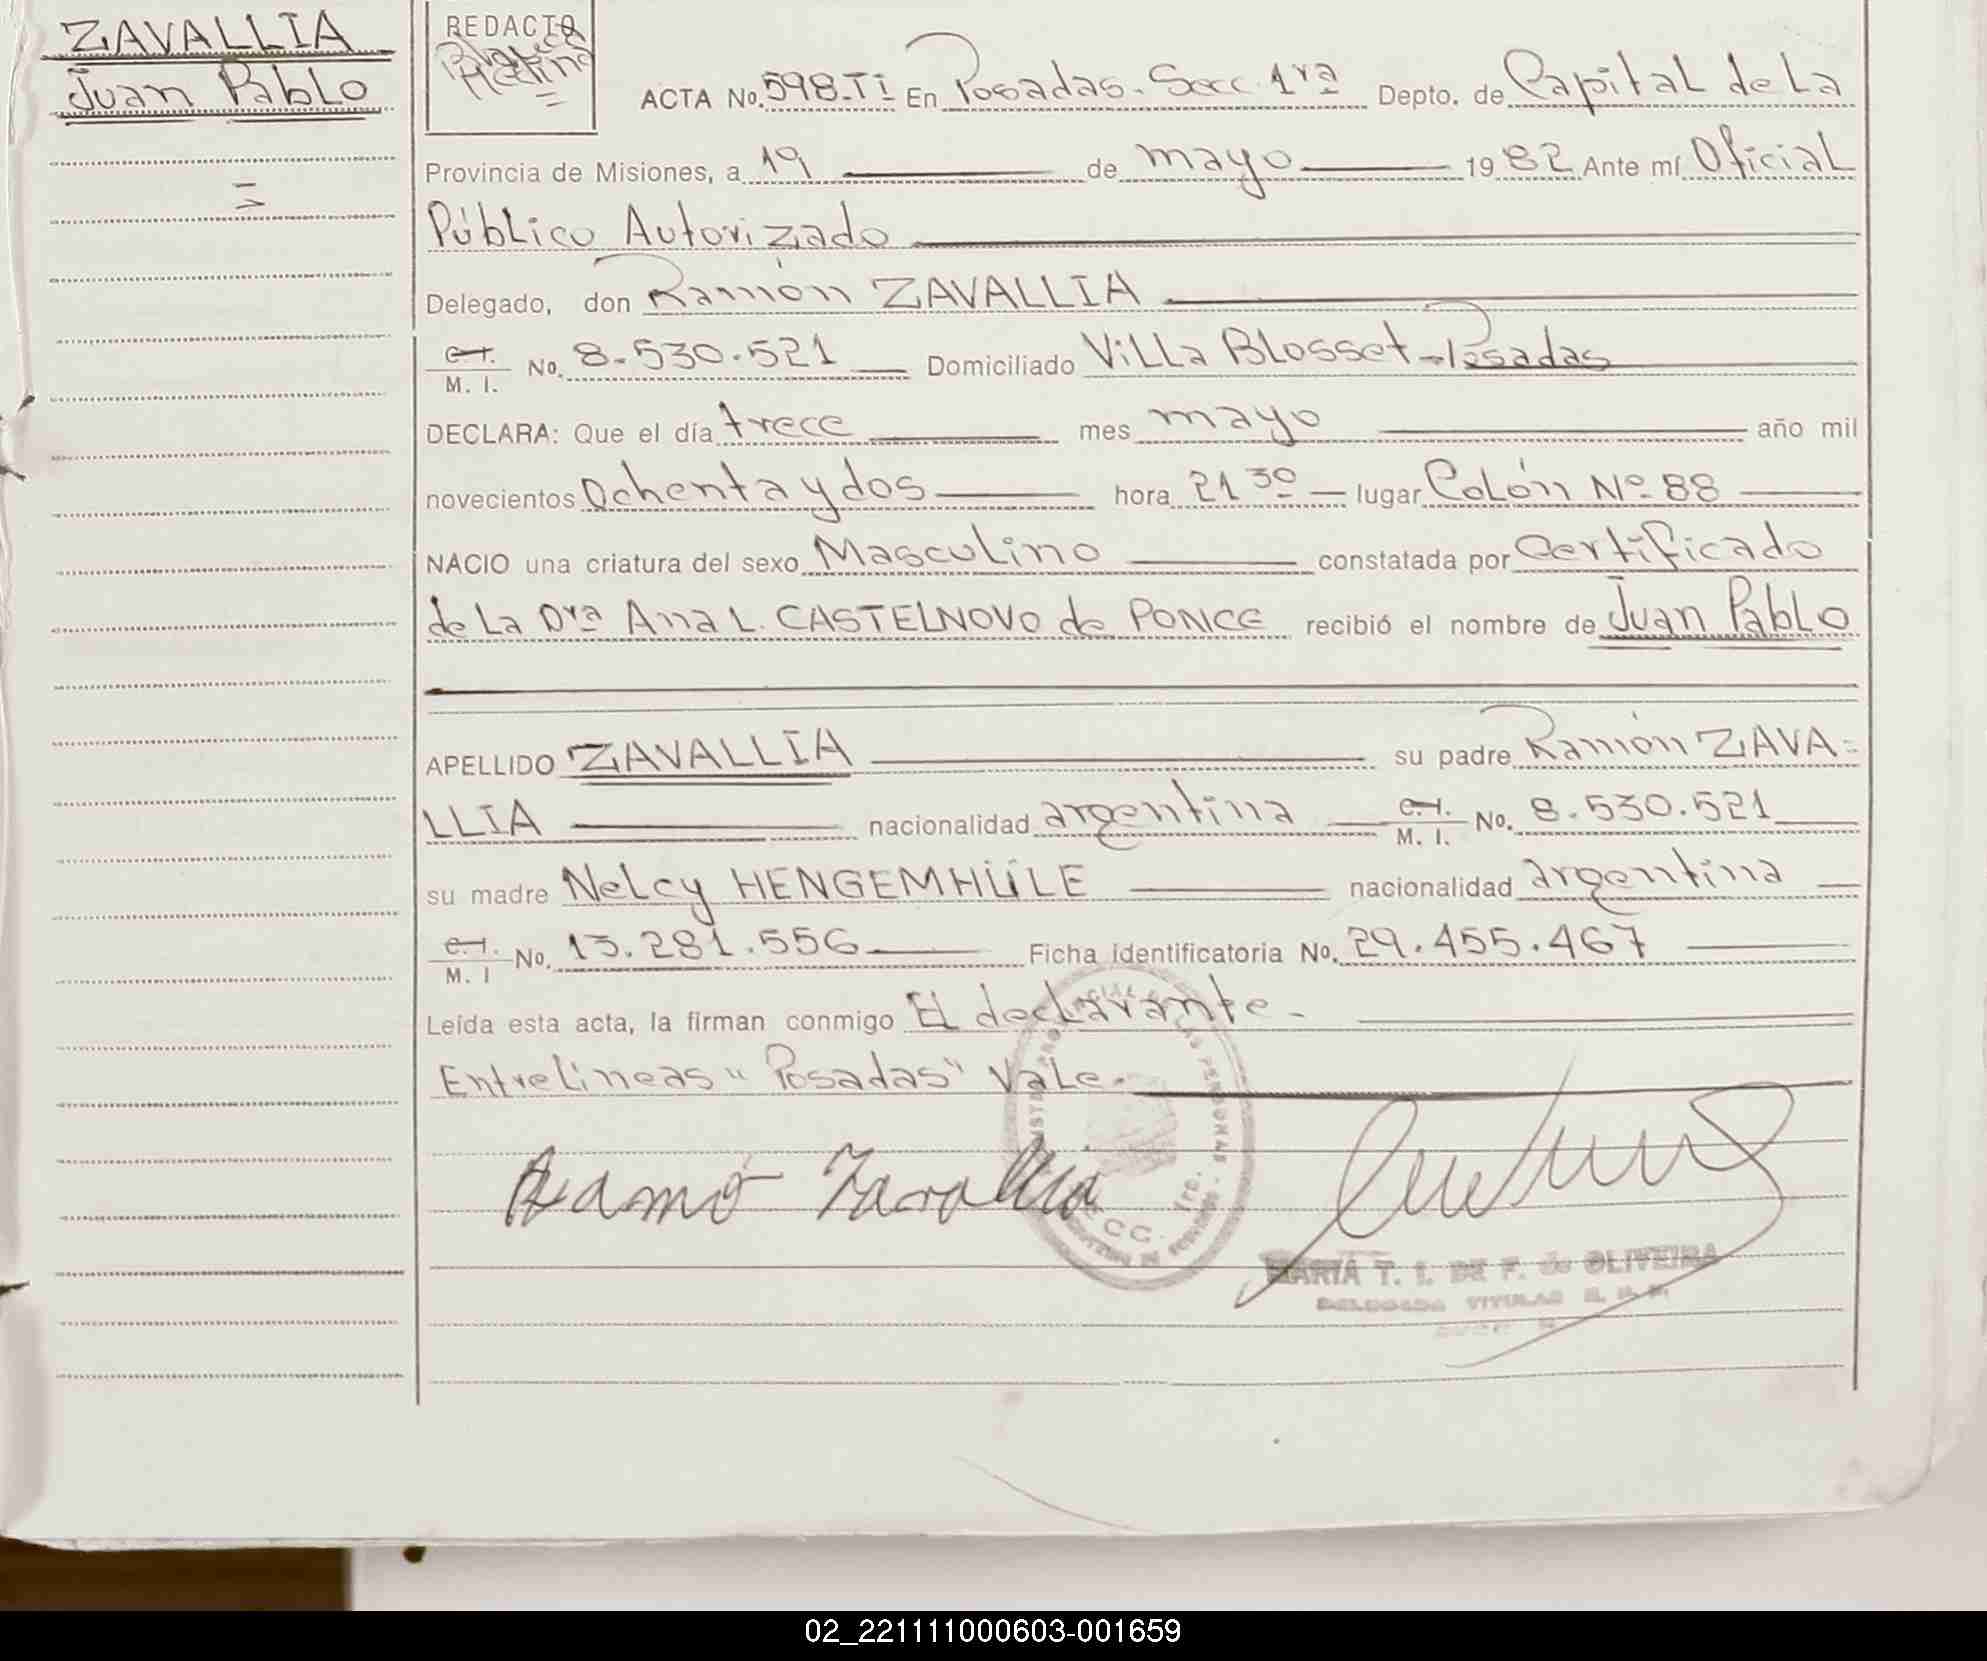 ZAVALLIA
Juan Pablo
REDACTO
Blanca
Medina
ACTA No. 598-TI En Posadas. Secc. 1ra Depto. de Capital de La
Provincia de Misiones, a 19 de mayo 1982 Ante mí Oficial
Público Autorizado
Delegado, don Ramón ZAVALLIA
C.I. M. I. No. 8.530.521 Domiciliado Villa Blosset - Posadas
DECLARA: Que el día trece mes mayo año mil
novecientos Ochenta y dos hora 21 30 lugar Colón Nº 88
NACIO una criatura del sexo Masculino constatada por Certificado
de La Dra Ana L. CASTELNOVO de PONCE recibió el nombre de Juan Pablo
APELLIDO ZAVALLIA su padre Ramón ZAVA=
LLIA nacionalidad argentina C.I. M. I. No. 8.530.521
su madre Nelcy HENGEMHÜLE nacionalidad argentina
C.I. M. I No. 13.281.556 Ficha identificatoria No. 29.455.467
Leída esta acta, la firman conmigo El declarante.
Entrelineas "Posadas" Vale.
Ramó Zavallia
MARIA T. I. DE F. de OLIVEIRA
DELEGADA TITULAR
02_221111000603-001659